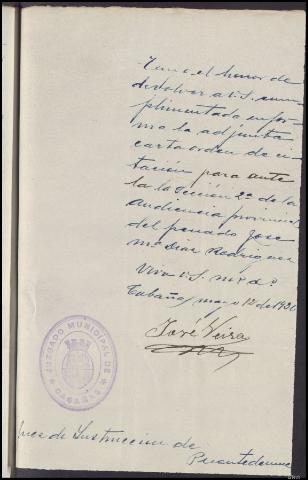 Tengo el honor de
devolver a V.S. cum-
plimentada en for-
ma la adjunta
carta orden de ci-
tación para ante
la Sección 2ª de la
Audiencia provincial
del penado Jose
Mª Diaz Rodriguez
Viva V.S. m.s a.s
Cabañas, marzo 12 de 19
José Veira
JUZGADO MUNICIPAL DE
CABAÑAS
Juez de Instruccion de
Puentedeume